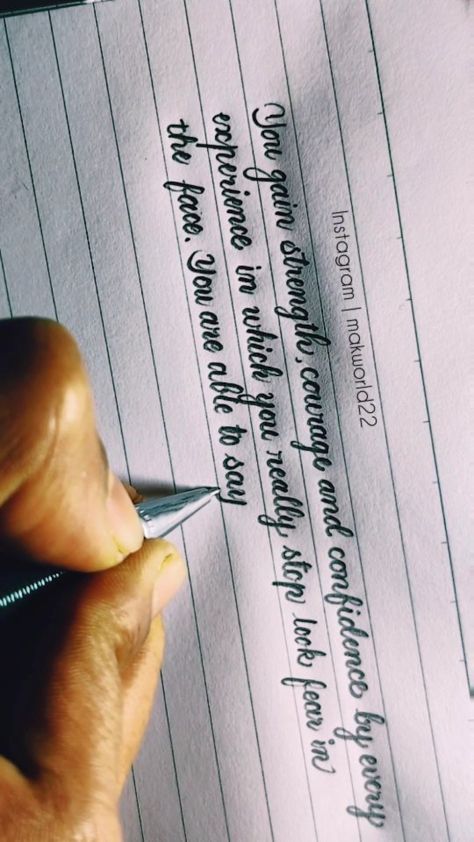 Instagram | makworld22
You gain strength, courage and confidence by every
experience in which you really stop lock fear in
the face. You are able to say